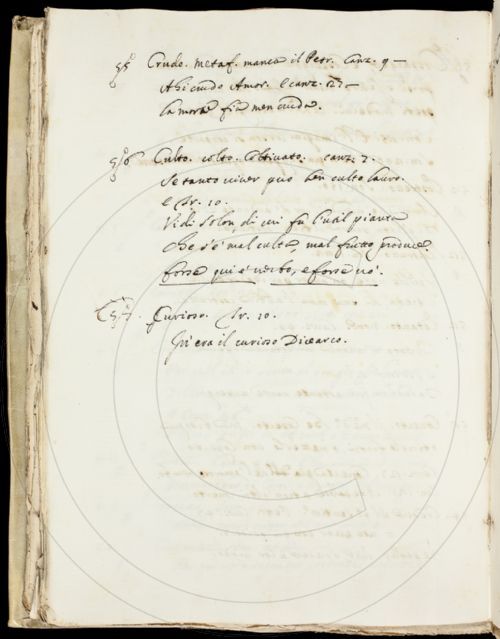 55 Crudo. metaf. manca il Petr. canz. 9 —
Ahi crudo Amor. e canz. 27 —
la morte fia men cruda.
56 Culto. colto. Coltivato. canz. 7.
Se tanto viver può ben culto lauro.
e Tr. 10.
Vidi Solon, di cui fu l'util pianta
che s'è mal culta, mal frutto produce.
forse qui è verbo, e forse nò.
57. Curioso. Tr. 10.
Iv'era il curioso Dicearco.